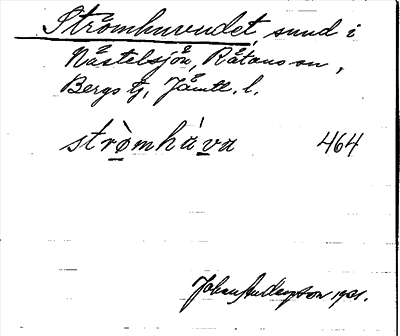 Strömhuvudet, sund i
Nästelsjön, Rätans sn,
Bergs tg, Jämtl. l.
strò̱mhá̱va 464
Johan Anderson 1931.